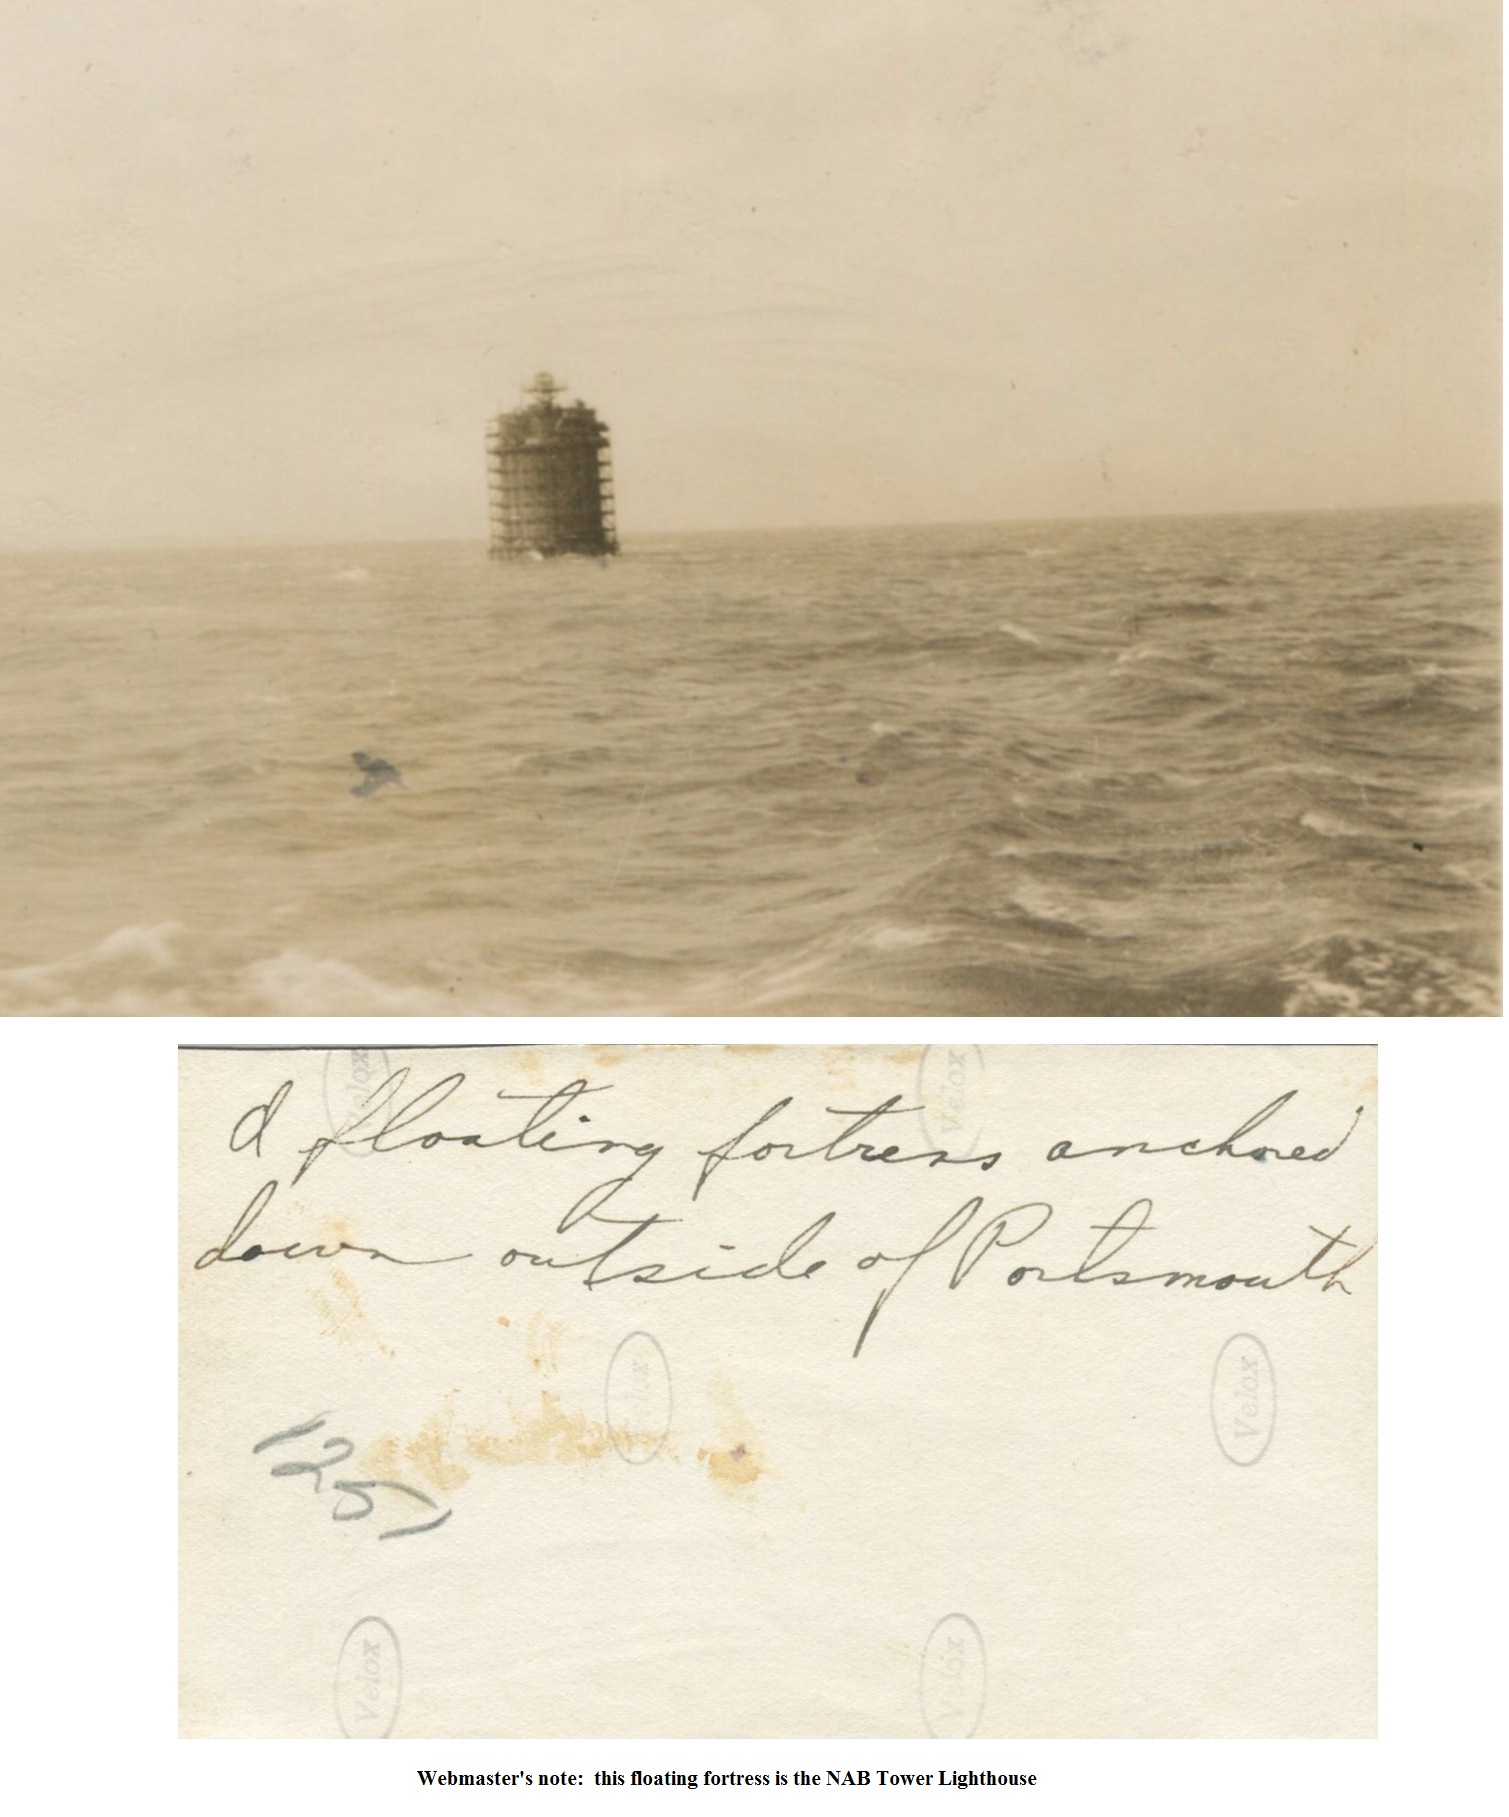 Velox Velox
A floating fortress anchored
down outside of Portsmouth
Velox Velox
125)
Velox Velox
Webmaster's note:  this floating fortress is the NAB Tower Lighthouse